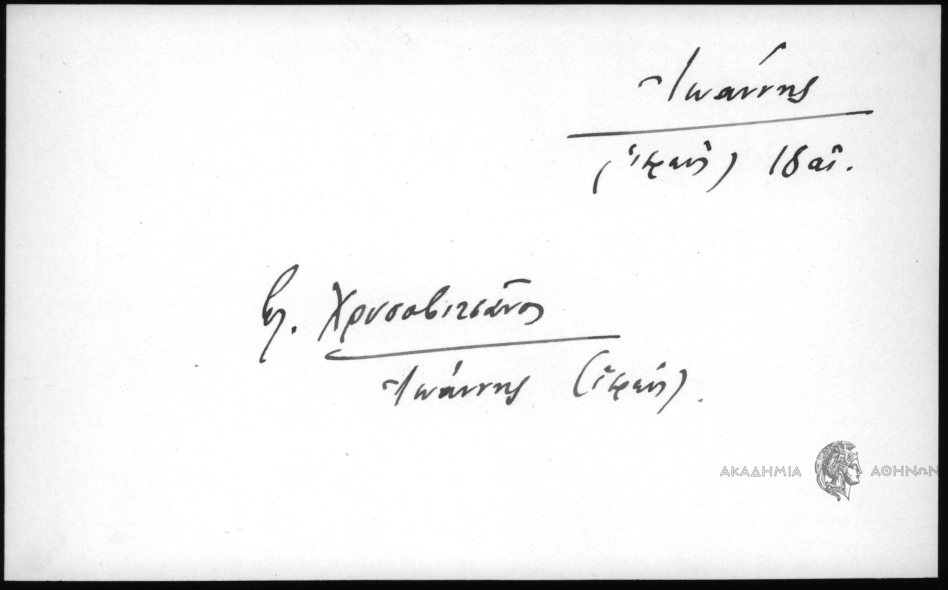 Ἰωάννης
(ἱερεὺς) 18 αἰ.
βλ. Χρυσοβιτσάνος
Ἰωάννης (ἱερεύς).
ΑΚΑΔΗΜΙΑ ΑΘΗΝΩΝ